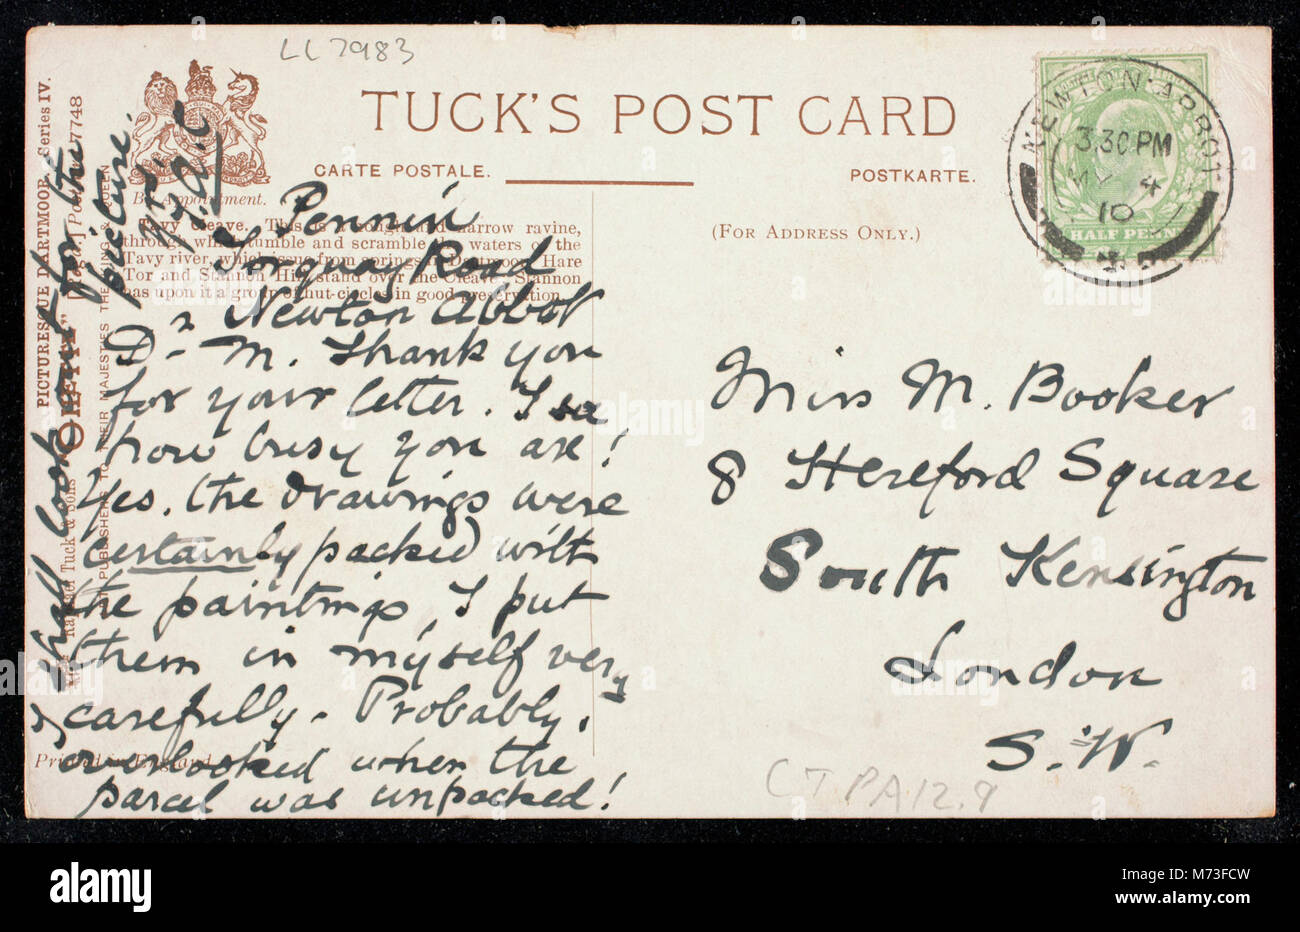 LL7983
TUCK'S POST CARD
CARTE POSTALE.
POSTKARTE.
By Appointment.
(FOR ADDRESS ONLY.)
NEWTON ABBOT
3.30 PM
MY 4
10
HALF PENNY
Tavy Cleave. This is a narrow ravine,
through which tumble and scramble the waters of the
Tavy river, which issue from springs Dartmoor. Hare
Tor and Stannon Hill stand over the Cleave. Stannon
has upon it a group of hut-circles in good preservation.
Pennin
Torquay Road
Newton Abbot
D- M. Thank you
for your letter. I see
how busy you are!
Yes, the drawings were
certainly packed with
the paintings I put
them in myself very
carefully. Probably,
overlooked when the
parcel was unpacked!
I shall look out for the
picture.
Miss M. Booker
8 Hereford Square
South Kensington
London
S.W.
PICTURESQUE DARTMOOR Series IV.
"OILETTE" 7748
Raphael Tuck & Sons
PUBLISHERS TO THEIR MAJESTIES THE KING & QUEEN
Printed in England
CTPA12.9
alamy
M73FCW
www.alamy.com